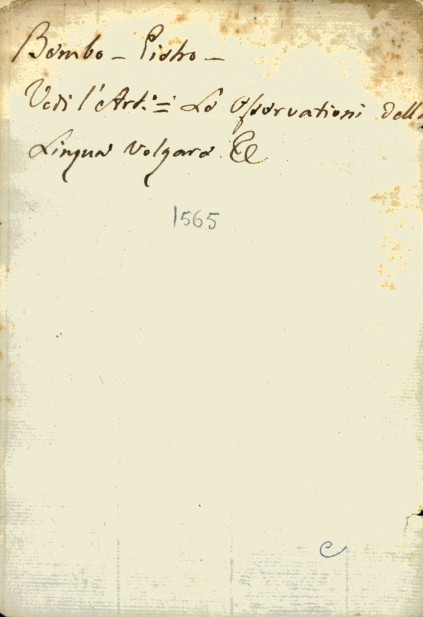 Bembo - Pietro -
Vedi l'Art.º = Le Osservationi della
Lingua Volgare &c
1565
c